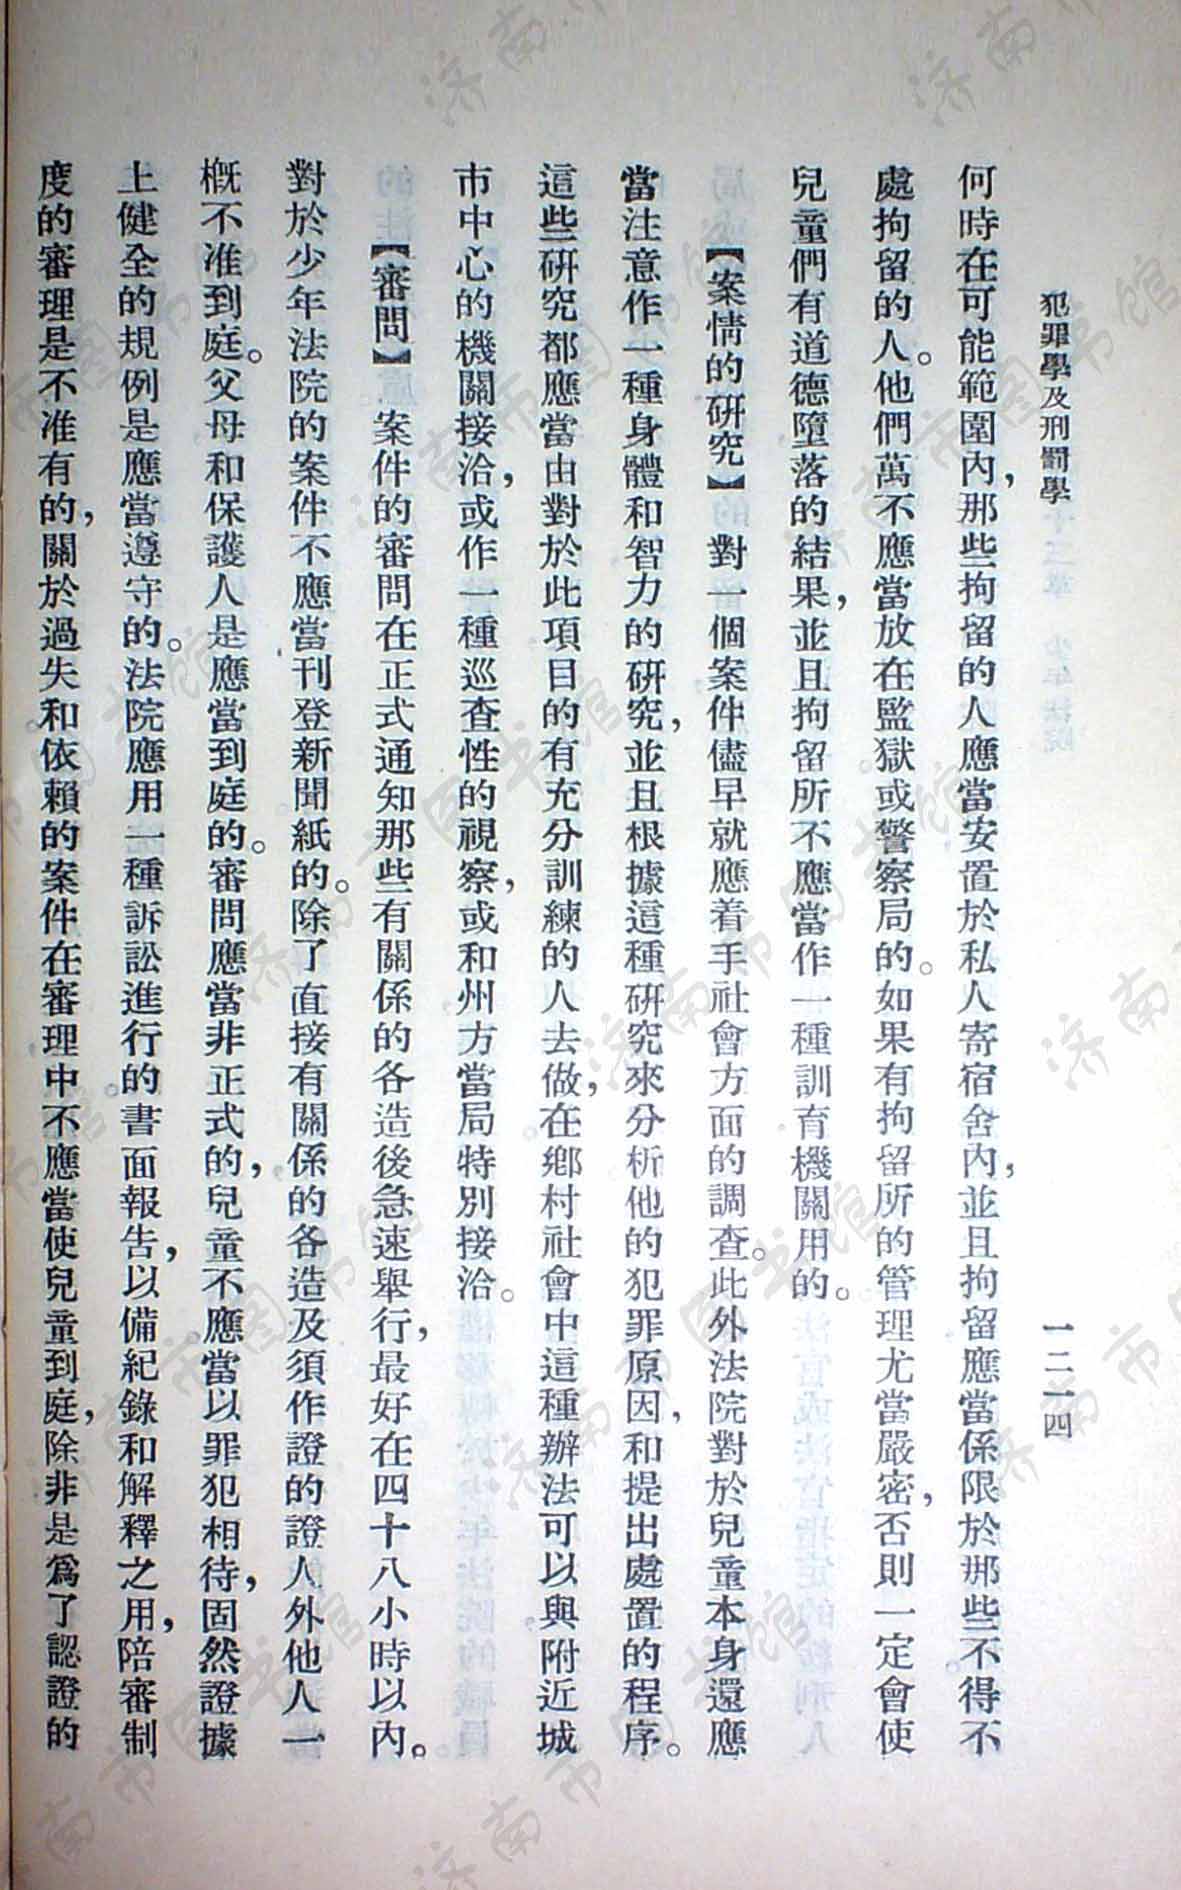 犯罪學及刑罰學
一二一四
何時在可能範圍內，那些拘留的人應當安置於私人寄宿舍內，並且拘留應當係限於那些不得不
處拘留的人。他們萬不應當放在監獄或警察局的。如果有拘留所的管理尤當嚴密，否則一定會使
兒童們有道德墮落的結果，並且拘留所不應當作一種訓育機關用的。
【案情的研究】對一個案件儘早就應着手社會方面的調查。此外法院對於兒童本身還應
當注意作一種身體和智力的研究，並且根據這種研究來分析他的犯罪原因，和提出處置的程序。
這些研究都應當由對於此項目的有充分訓練的人去做，在鄉村社會中這種辦法可以與附近城
市中心的機關接洽，或作一種巡查性的視察，或和州方當局特別接洽。
【審問】案件的審問在正式通知那些有關係的各造後急速舉行，最好在四十八小時以內。
對於少年法院的案件不應當刊登新聞紙的。除了直接有關係的各造及須作證的證人外他人一
概不准到庭。父母和保護人是應當到庭的。審問應當非正式的，兒童不應當以罪犯相待，固然證據
上健全的規例是應當遵守的。法院應用一種訴訟進行的書面報告，以備紀錄和解釋之用，陪審制
度的審理是不准有的，關於過失和依賴的案件在審理中不應當使兒童到庭，除非是爲了認證的
济南市图书馆